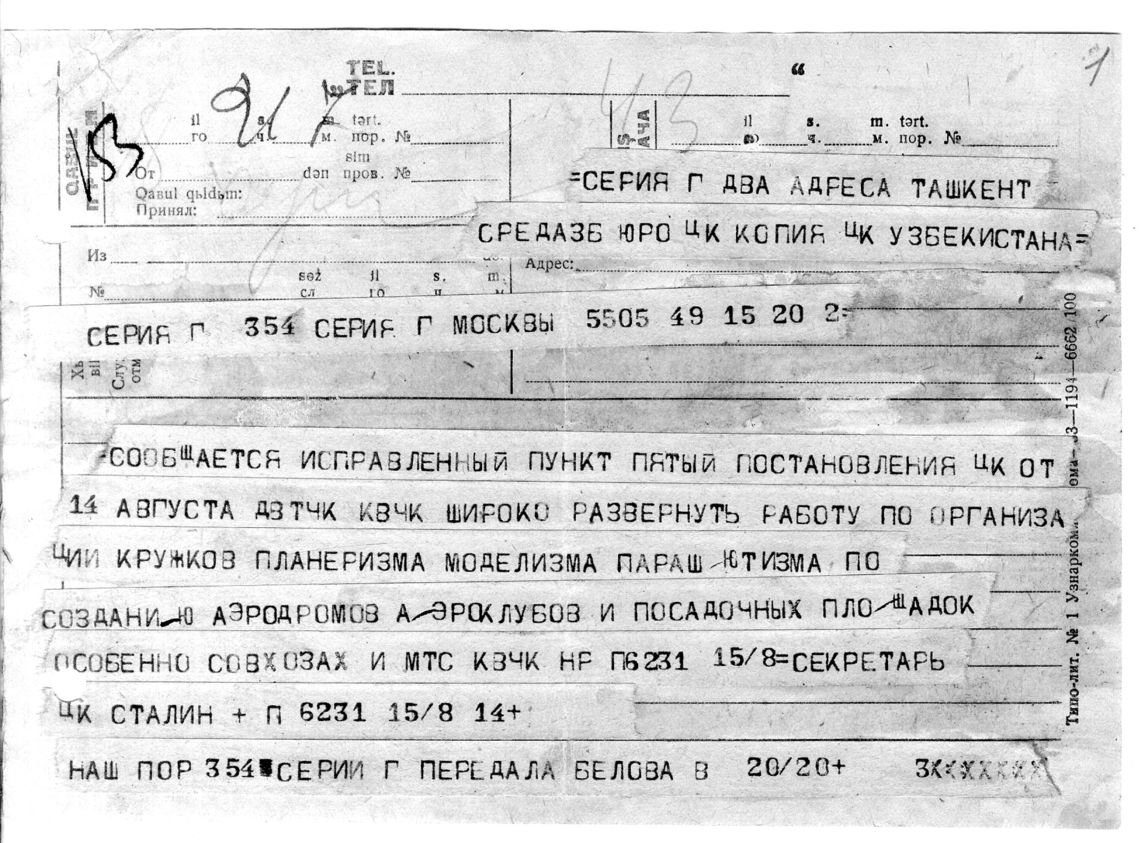 1
TEL.
ТЕЛ
"
43
il s. m. tərt.
го ч. м. пор. №
il s. m. tərt.
ч. м. пор. №
АЧА
53
sim
От dən пров. №
Qabul qьldьm:
Принял:
=СЕРИЯ Г ДВА АДРЕСА ТАШКЕНТ
СРЕДАЗБ ЮРО ЦК КОПИЯ ЦК УЗБЕКИСТАНА=
Из
Адрес:
səz il s. m.
№ сл го
СЕРИЯ Г 354 СЕРИЯ Г МОСКВЫ 5505 49 15 20 2=
=СООБЩАЕТСЯ ИСПРАВЛЕННЫЙ ПУНКТ ПЯТЫЙ ПОСТАНОВЛЕНИЯ ЦК ОТ
14 АВГУСТА ДВТЧК КВЧК ШИРОКО РАЗВЕРНУТЬ РАБОТУ ПО ОРГАНИЗА
ЦИИ КРУЖКОВ ПЛАНЕРИЗМА МОДЕЛИЗМА ПАРАШ ЮТИЗМА ПО
СОЗДАНИ Ю АЭРОДРОМОВ А ЭРОКЛУБОВ И ПОСАДОЧНЫХ ПЛО ЩАДОК
ОСОБЕННО СОВХОЗАХ И МТС КВЧК НР П6231 15/8=СЕКРЕТАРЬ
ЦК СТАЛИН + П 6231 15/8 14+
НАШ ПОР 354 СЕРИИ Г ПЕРЕДАЛА БЕЛОВА В 20/20+ ЗХХХХХХХ
Типо-лит. № 1 Узнаркома 1194—6662 100